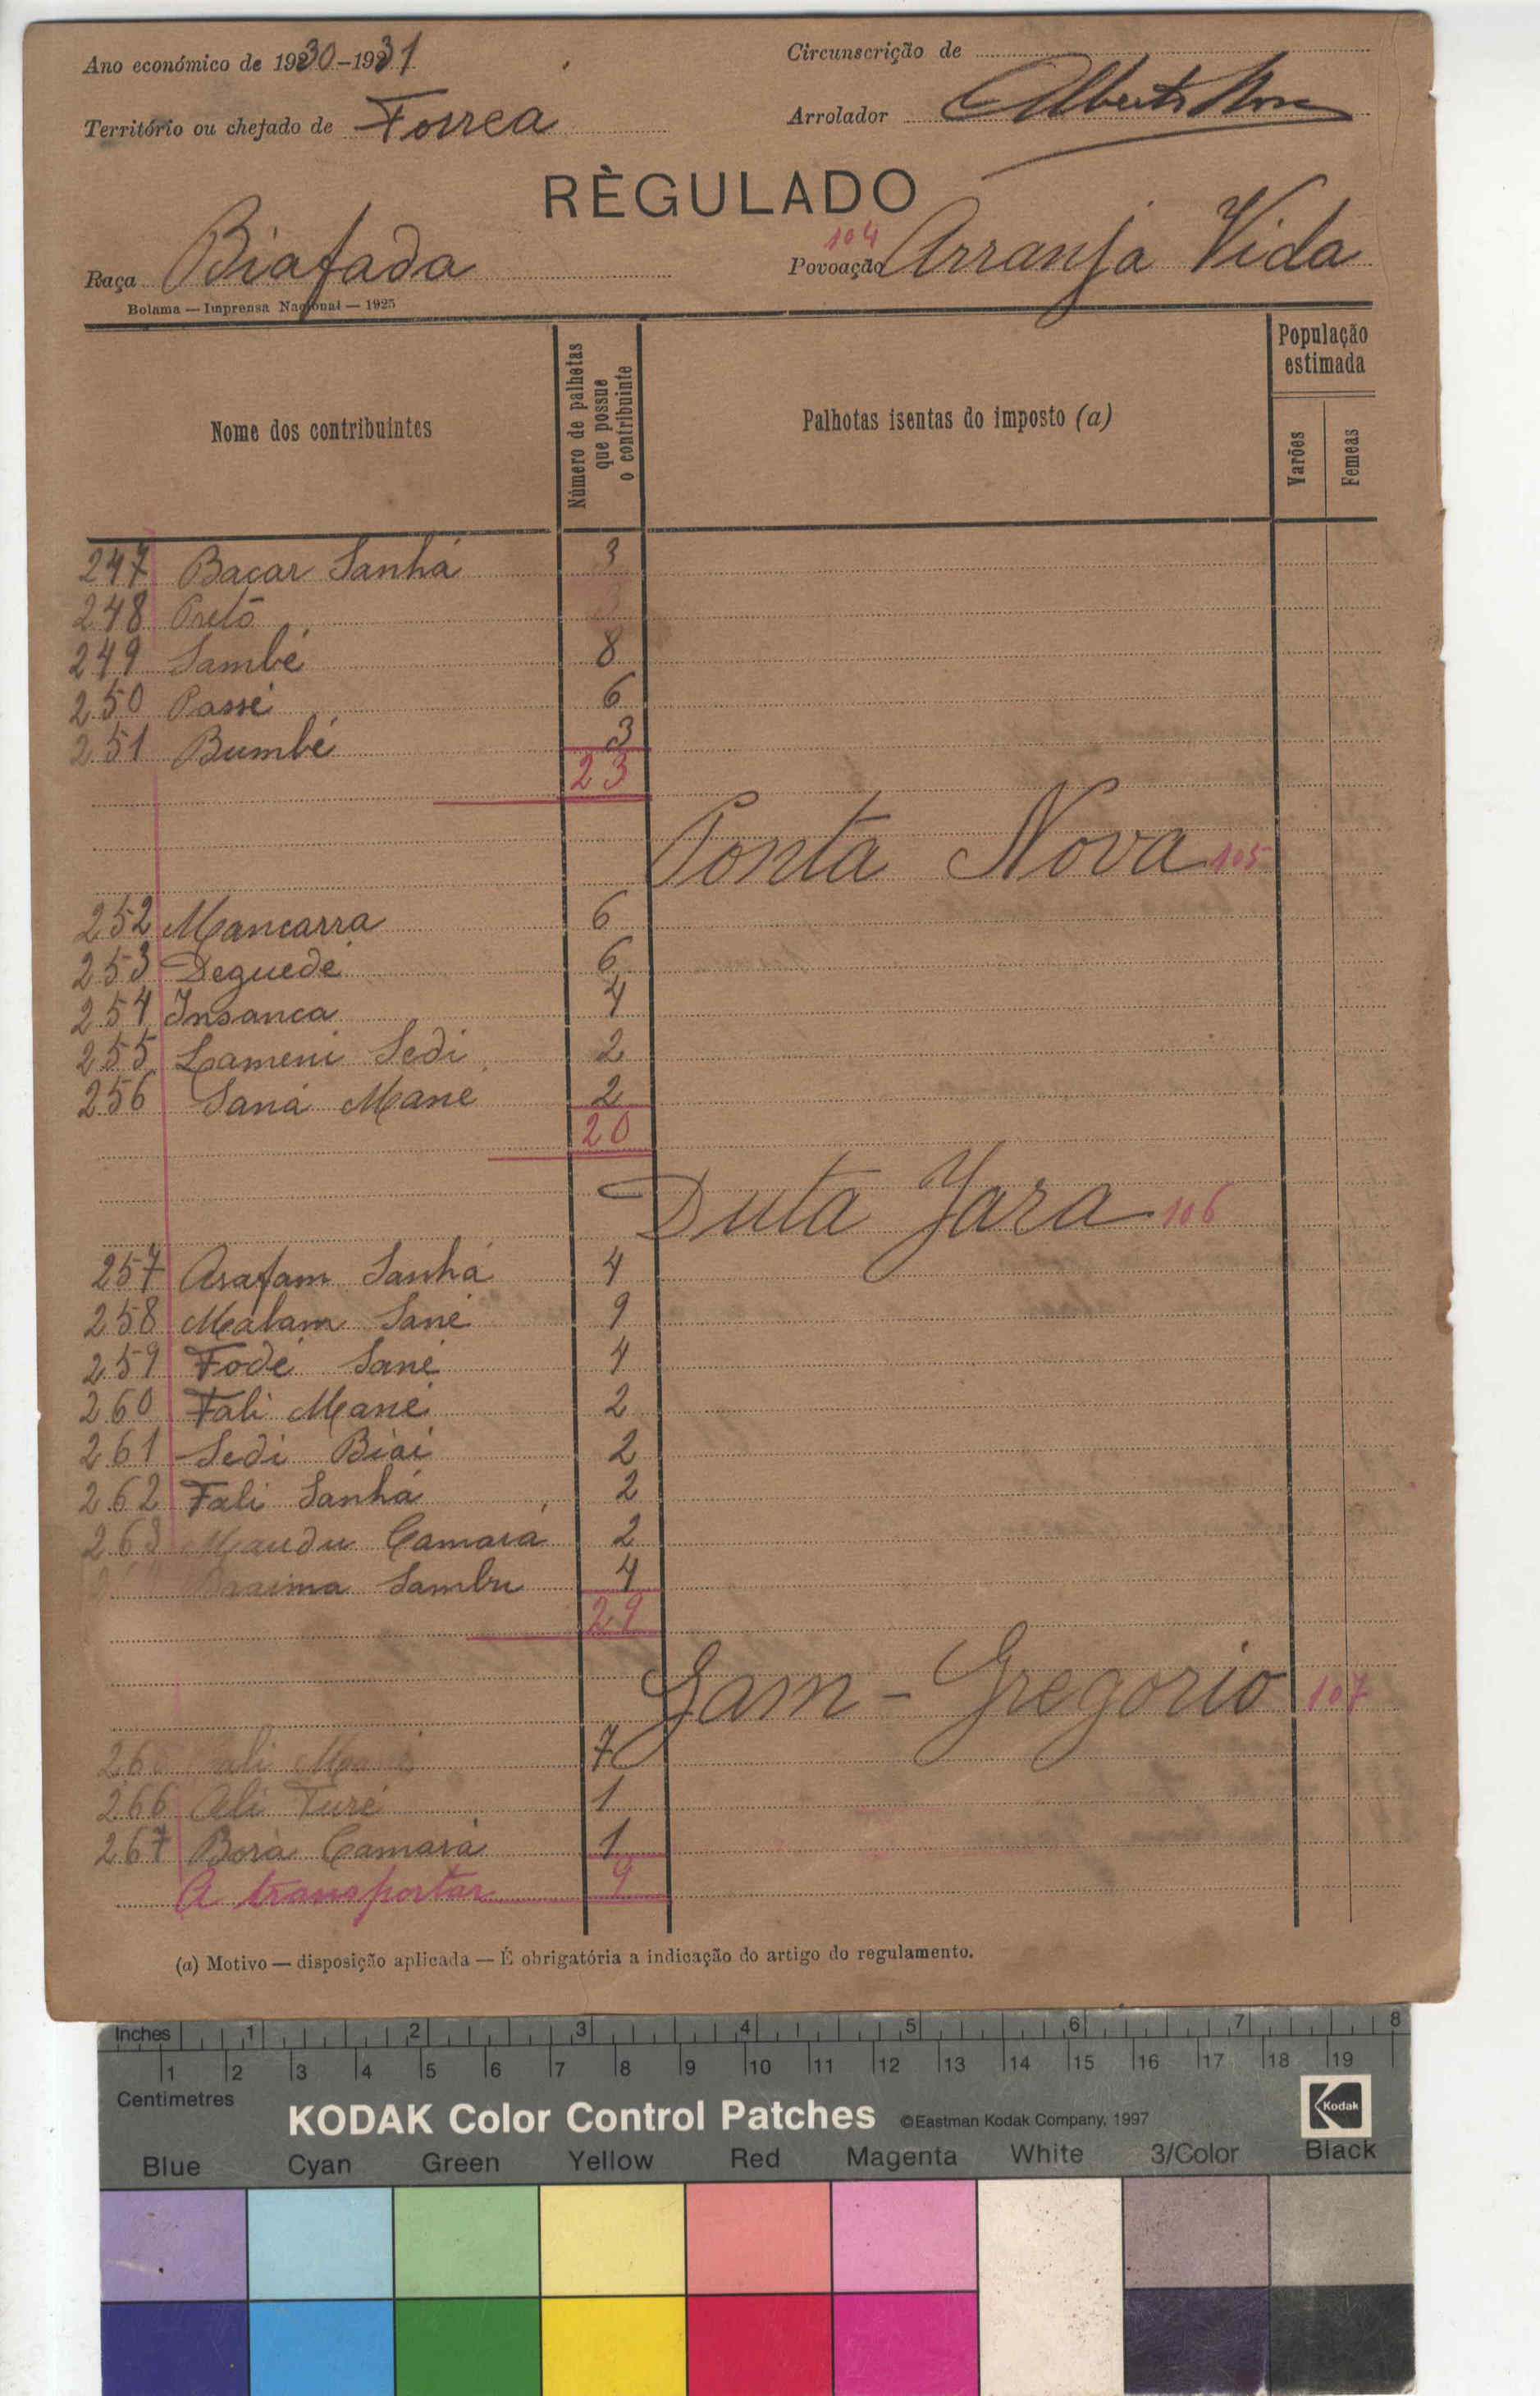 Ano económico de 1930-1931
Circunscrição de
Território ou chefado de Forrea
Arrolador Alberto
RÈGULADO
Raça Biafada
104
Povoação Arranja Vida
Bolama — Imprensa Nacional — 1925
Nome dos contribuintes
Número de palhetas que possue o contribuinte
Palhotas isentas do imposto (a)
População estimada
Varões
Femeas
247 Bacar Sanhá 3
248 Pretō 3
249 Sambé 8
250 Passé 6
251 Bumbé 3
23
Ponta Nova 105
252 Mancarra 6
253 Deguedé 6
254 Insanca 4
255 Lameni Sedi 2
256 Saná Mané 2
20
Duta Jara 106
257 Arafam Sanhá 4
258 Malam Sané 9
259 Fodé Sané 4
260 Fali Mané 2
261 Sedi Biai 2
262 Fali Sanhá 2
263 Maudu Camará 2
Braima Sambu 4
29
Gam-Gregorio 107
7
266 Ali Turé 1
267 Bora Camará 1
A transportar 9
(a) Motivo — disposição aplicada — É obrigatória a indicação do artigo do regulamento.
Inches 1 2 3 4 5 6 7 8
1 2 3 4 5 6 7 8 9 10 11 12 13 14 15 16 17 18 19
Centimetres
KODAK Color Control Patches ©Eastman Kodak Company, 1997 Kodak
Blue Cyan Green Yellow Red Magenta White 3/Color Black